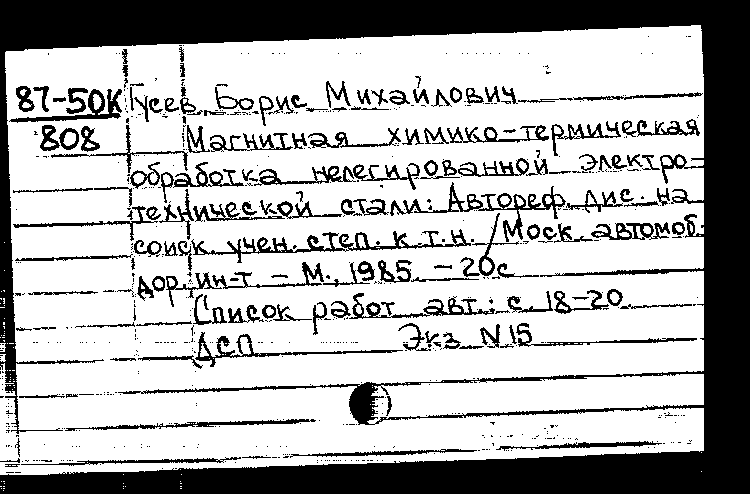 87-50К Гусев, Борис Михайлович
808 Магнитная химико-термическая
обработка нелегированной электро-
технической стали: Автореф. дис. на
соиск. учен. степ. к.т.н. / Моск. автомоб.-
дор. ин-т. - М., 1985. - 20с
Список работ авт.: с. 18-20.
ДСП Экз N 15